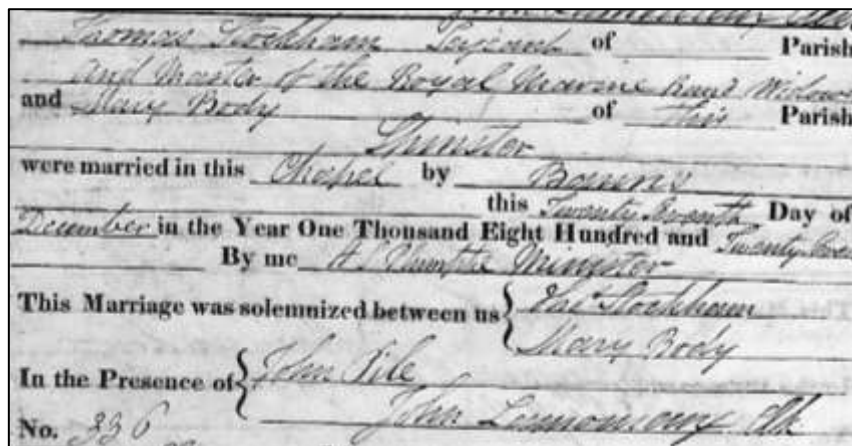 Thomas Stockham Serjeant of Parish
and Master of the Royal Marine Band Widower
and Mary Body of this Parish
Spinster
were married in this Chapel by Banns
this Twenty Seventh Day of
December in the Year One Thousand Eight Hundred and Twenty Seven
By me Minister
This Marriage was solemnized between us { Thos Stockham
Mary Body
In the Presence of { John Pile
John
No. 336